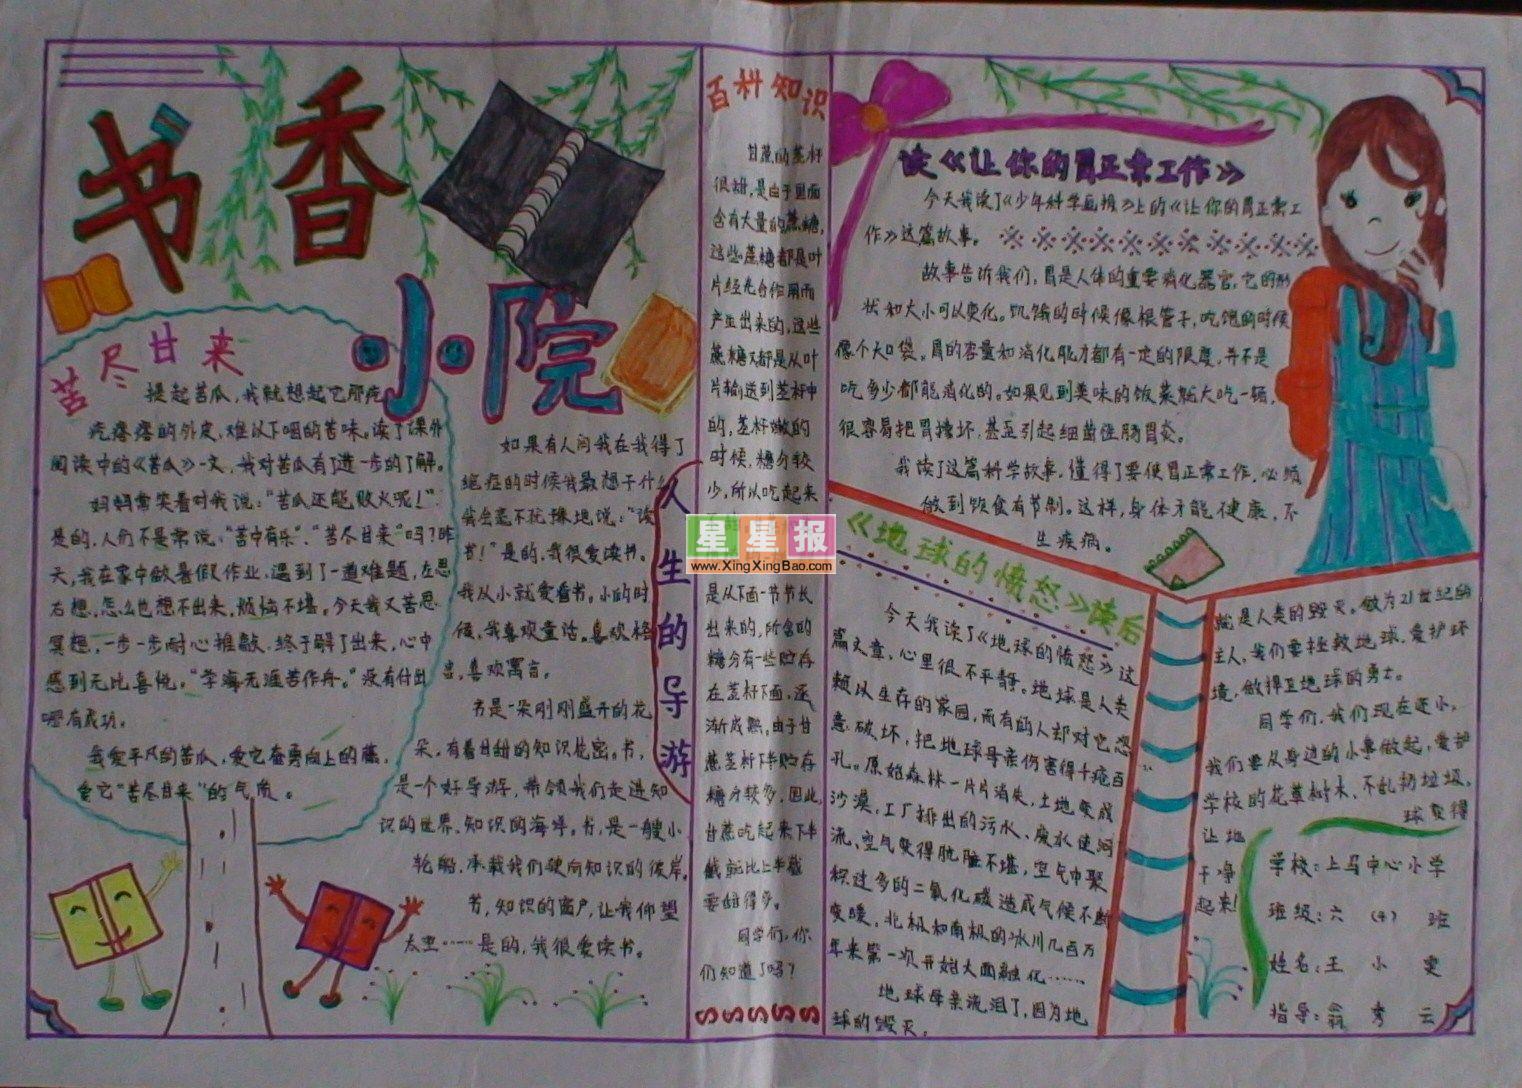 书香
小院
苦尽甘来
提起苦瓜，我就想起它那疙
疙瘩瘩的外皮，难以下咽的苦味。读了课外
阅读中的《苦瓜》一文，我对苦瓜有了进一步的了解。
妈妈常笑着对我说：“苦瓜还能败火呢！”
是的，人们不是常说，“苦中有乐”、“苦尽甘来”吗？昨
天，我在家中做暑假作业，遇到了一道难题，左思
右想，怎么也想不出来，烦恼不堪。今天我又苦思
冥想，一步一步耐心推敲，终于解了出来，心中
感到无比喜悦。“学海无涯苦作舟。”没有付出
哪有成功。
我爱平凡的苦瓜，爱它奋勇向上的藤，
爱它“苦尽甘来”的气质。
人生的导游
如果有人问我在我得了
绝症的时候我最想干什么
我会毫不犹豫地说：“读
书！”是的，我很爱读书。
我从小就爱看书。小的时
候，我喜欢童话。喜欢格
言，喜欢寓言。
书是一朵刚刚盛开的花
朵，有着甘甜的知识花蜜。书，
是一个好导游，带领我们走进知
识的世界、知识的海洋。书，是一艘小
轮船，承载我们驶向知识的彼岸。
书，知识的窗户，让我仰望
太空……是的，我很爱读书。
百科知识
甘蔗的茎秆
很甜，是由于里面
含有大量的蔗糖，
这些蔗糖都是叶
片经光合作用而
产生出来的，这些
蔗糖又都是从叶
片输送到茎杆中
的，茎秆嫩的
时候，糖分较
少，所以吃起来
是从下面一节节长
出来的，所含的
糖分有一些贮存
在茎杆下面，逐
渐成熟。由于甘
蔗茎杆下半贮存
糖分较多，因此，
甘蔗吃起来下半
截就比上半截
要甜得多。
同学们，你
们知道了吗？
星星报
www.XingXingBao.com
读《让你的胃正常工作》
今天我读了《少年科学画报》上的《让你的胃正常工
作》这篇故事。
故事告诉我们，胃是人体的重要消化器官，它的形
状和大小可以变化。饥饿的时候像根管子，吃饱的时候
像个大口袋。胃的容量和消化能力都有一定的限度，并不是
吃多少都能消化的。如果见到美味的饭菜就大吃一顿，
很容易把胃撑坏，甚至引起细菌性肠胃炎。
我读了这篇科学故事，懂得了要使胃正常工作，必须
做到饮食有节制。这样，身体才能健康，不
生疾病。
《地球的愤怒》读后
今天我读了《地球的愤怒》这
篇文章，心里很不平静。地球是人类
赖以生存的家园，而有的人却对它恣
意破坏，把地球母亲伤害得千疮百
孔。原始森林一片片消失，土地变成
沙漠，工厂排出的污水、废水使河
流、空气变得肮脏不堪，空气中聚
积过多的二氧化碳造成气候不断
变暖，北极和南极的冰川几百万
年来第一次开始大面融化……
地球母亲流泪了，因为地
球的毁灭。
就是人类的毁灭。做为21世纪的
主人，我们要拯救地球，爱护环
境，做捍卫地球的勇士。
同学们，我们现在还小，
我们要从身边的小事做起，爱护
学校的花草树木、不乱扔垃圾。
让地
球变得
干净
起来！
学校：上马中心小学
班级：六（4）班
姓名：王小雯
指导：翁秀云